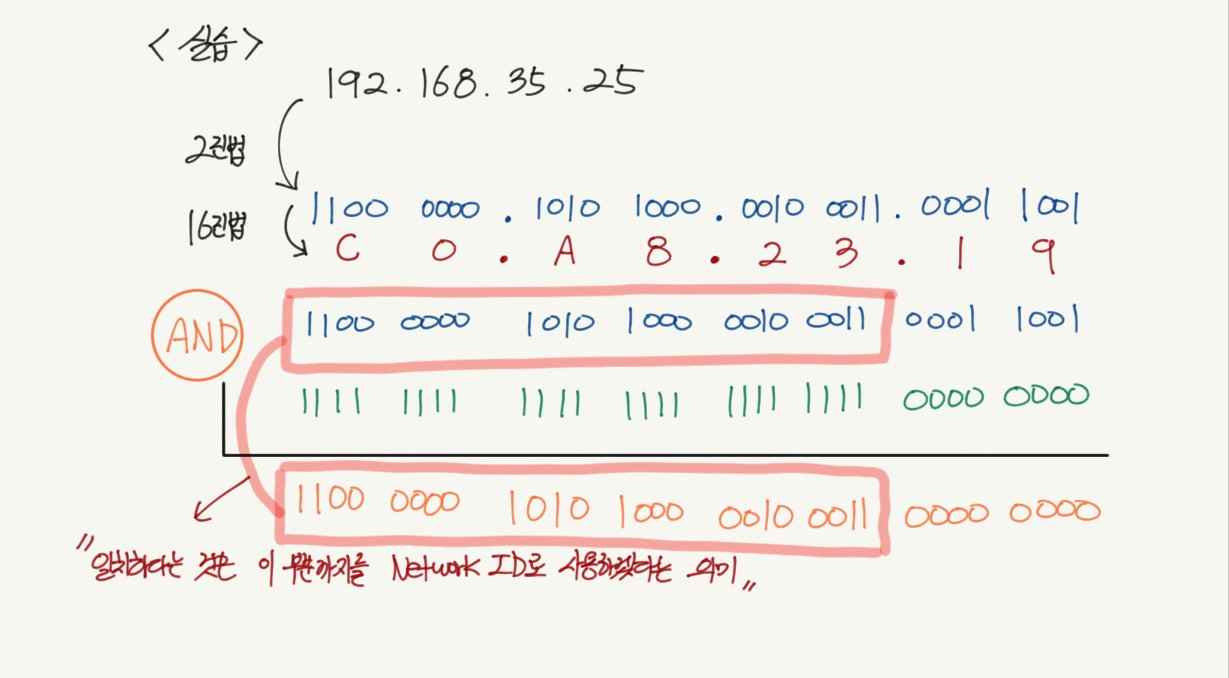 < 실습 >
192. 168. 35 .25
2진법
1100 0000 . 1010 1000 . 0010 0011 . 0001 1001
16진법
C 0 . A 8 . 2 3 . 1 9
AND
1100 0000 1010 1000 0010 0011 0001 1001
1111 1111 1111 1111 1111 1111 0000 0000
1100 0000 1010 1000 0010 0011 0000 0000
"일치하다는 것은 이 부분까지를 Network ID로 사용하겠다는 의미"